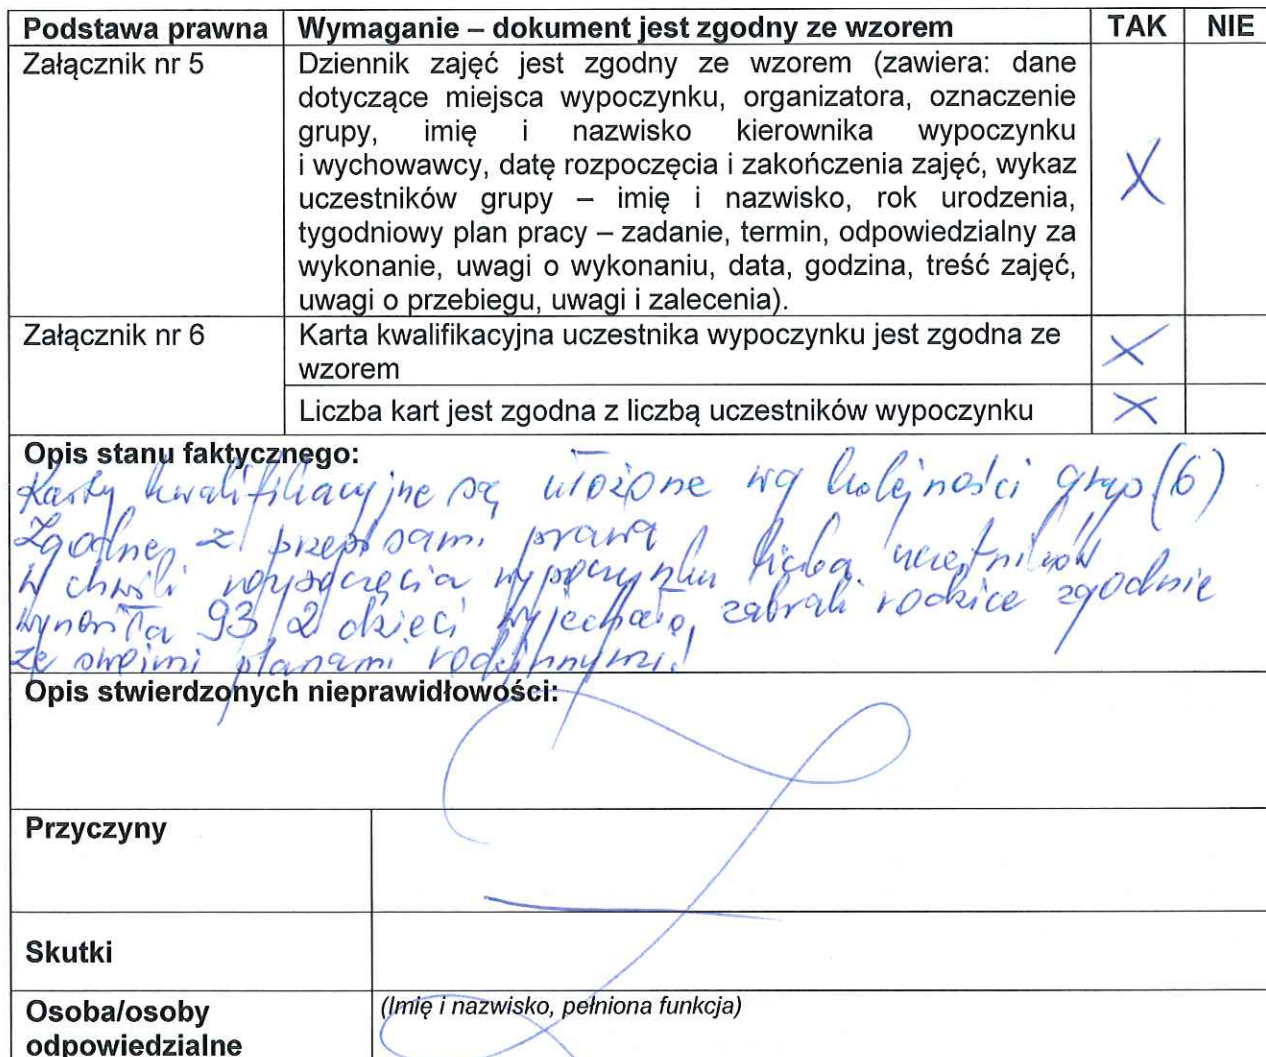 Podstawa prawna Wymaganie – dokument jest zgodny ze wzorem TAK NIE
Załącznik nr 5 Dziennik zajęć jest zgodny ze wzorem (zawiera: dane
dotyczące miejsca wypoczynku, organizatora, oznaczenie
grupy, imię i nazwisko kierownika wypoczynku
i wychowawcy, datę rozpoczęcia i zakończenia zajęć, wykaz
uczestników grupy – imię i nazwisko, rok urodzenia,
tygodniowy plan pracy – zadanie, termin, odpowiedzialny za
wykonanie, uwagi o wykonaniu, data, godzina, treść zajęć,
uwagi o przebiegu, uwagi i zalecenia).
X
Załącznik nr 6 Karta kwalifikacyjna uczestnika wypoczynku jest zgodna ze
wzorem
X
Liczba kart jest zgodna z liczbą uczestników wypoczynku X
Opis stanu faktycznego:
Karty kwalifikacyjne są ułożone wg kolejności grup (6)
Zgodne z przepisami prawa
W chwili rozpoczęcia wypoczynku liczba uczestników
wynosiła 93 2 dzieci wyjechało, zabrali rodzice zgodnie
ze swoimi planami rodzinnymi.
Opis stwierdzonych nieprawidłowości:
Przyczyny
Skutki
Osoba/osoby (Imię i nazwisko, pełniona funkcja)
odpowiedzialne